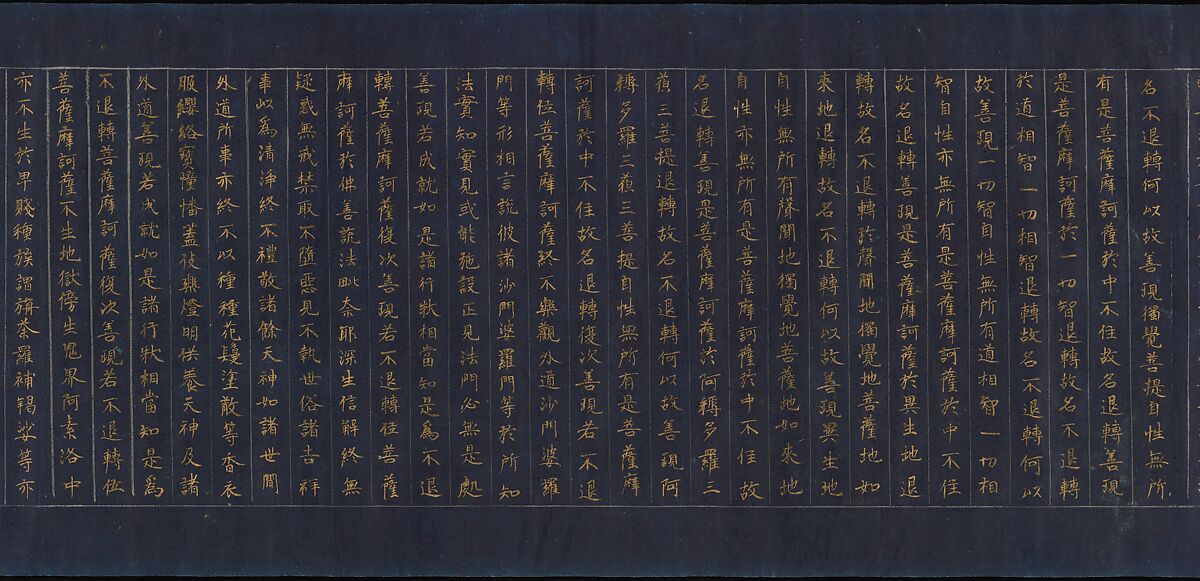 名不退轉何以故善現獨覺菩提自性無所
有是菩薩摩訶薩於中不住故名退轉善現
是菩薩摩訶薩於一切智退轉故名不退轉
於道相智一切相智退轉故名不退轉何以
故善現一切智自性無所有道相智一切相
智自性亦無所有是菩薩摩訶薩於中不住
故名退轉善現是菩薩摩訶薩於異生地退
轉故名不退轉於聲聞地獨覺地菩薩地如
來地退轉故名不退轉何以故善現異生地
自性無所有聲聞地獨覺地菩薩地如來地
自性亦無所有是菩薩摩訶薩於中不住故
名退轉善現是菩薩摩訶薩於阿耨多羅三
藐三菩提退轉故名不退轉何以故善現阿
耨多羅三藐三菩提自性無所有是菩薩摩
訶薩於中不住故名退轉復次善現若不退
轉位菩薩摩訶薩終不樂觀外道沙門婆羅
門等形相言說彼諸沙門婆羅門等於所知
法實知實見或能施設正見法門必無是處
善現若成就如是諸行狀相當知是為不退
轉菩薩摩訶薩復次善現若不退轉位菩薩
摩訶薩於佛善說法毗奈耶深生信解終無
疑惑無戒禁取不墮惡見不執世俗諸吉祥
事以為清淨終不禮敬諸餘天神如諸世間
外道所事亦終不以種種花鬘塗散等香衣
服纓絡寶幢幡蓋伎樂燈明供養天神及諸
外道善現若成就如是諸行狀相當知是為
不退轉菩薩摩訶薩復次善現若不退轉位
菩薩摩訶薩不生地獄傍生鬼界阿素洛中
亦不生於卑賤種族謂旃荼羅補羯娑等亦